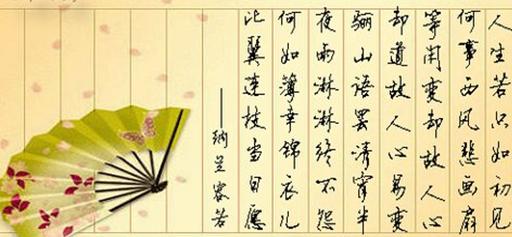 人生若只如初见
何事西风悲画扇
等闲变却故人心
却道故人心易变
骊山语罢清宵半
夜雨淋淋终不怨
何如薄幸锦衣儿
比翼连枝当日愿
——纳兰容若